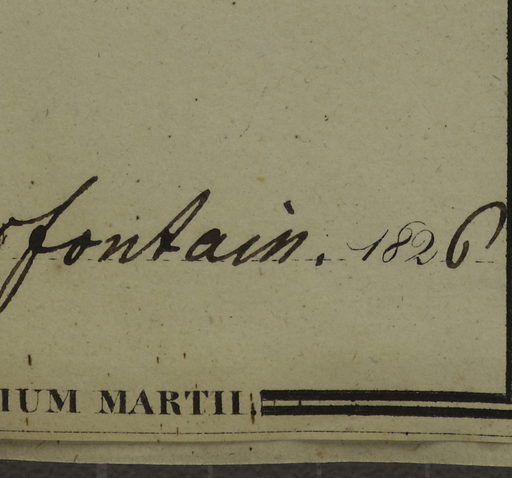 fontain. 1826
IUM MARTII